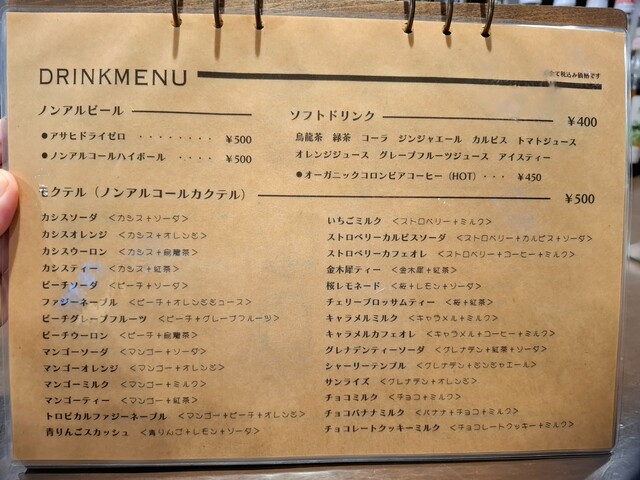 DRINKMENU
税込み価格です
ノンアルビール
●アサヒドライゼロ ········ ¥500
●ノンアルコールハイボール ···· ¥500
ソフトドリンク ¥400
烏龍茶 緑茶 コーラ ジンジャエール カルピス トマトジュース
オレンジジュース グレープフルーツジュース アイスティー
●オーガニックコロンビアコーヒー（HOT）··· ¥450
モクテル（ノンアルコールカクテル） ¥500
カシスソーダ ＜カシス＋ソーダ＞
カシスオレンジ ＜カシス＋オレンジ＞
カシスウーロン ＜カシス＋烏龍茶＞
カシスティー ＜カシス＋紅茶＞
ピーチソーダ ＜ピーチ＋ソーダ＞
ファジーネーブル ＜ピーチ＋オレンジジュース＞
ピーチグレープフルーツ ＜ピーチ＋グレープフルーツ＞
ピーチウーロン ＜ピーチ＋烏龍茶＞
マンゴーソーダ ＜マンゴー＋ソーダ＞
マンゴーオレンジ ＜マンゴー＋オレンジ＞
マンゴーミルク ＜マンゴー＋ミルク＞
マンゴーティー ＜マンゴー＋紅茶＞
トロピカルファジーネーブル ＜マンゴー＋ピーチ＋オレンジ＞
青りんごスカッシュ ＜青りんご＋レモン＋ソーダ＞
いちごミルク ＜ストロベリー＋ミルク＞
ストロベリーカルピスソーダ ＜ストロベリー＋カルピス＋ソーダ＞
ストロベリーカフェオレ ＜ストロベリー＋コーヒー＋ミルク＞
金木犀ティー ＜金木犀＋紅茶＞
桜レモネード ＜桜＋レモン＋ソーダ＞
チェリーブロッサムティー ＜桜＋紅茶＞
キャラメルミルク ＜キャラメル＋ミルク＞
キャラメルカフェオレ ＜キャラメル＋コーヒー＋ミルク＞
グレナデンティーソーダ ＜グレナデン＋紅茶＋ソーダ＞
シャーリーテンプル ＜グレナデン＋ジンジャエール＞
サンライズ ＜グレナデン＋オレンジ＞
チョコミルク ＜チョコ＋ミルク＞
チョコバナナミルク ＜バナナ＋チョコ＋ミルク＞
チョコレートクッキーミルク ＜チョコレートクッキー＋ミルク＞